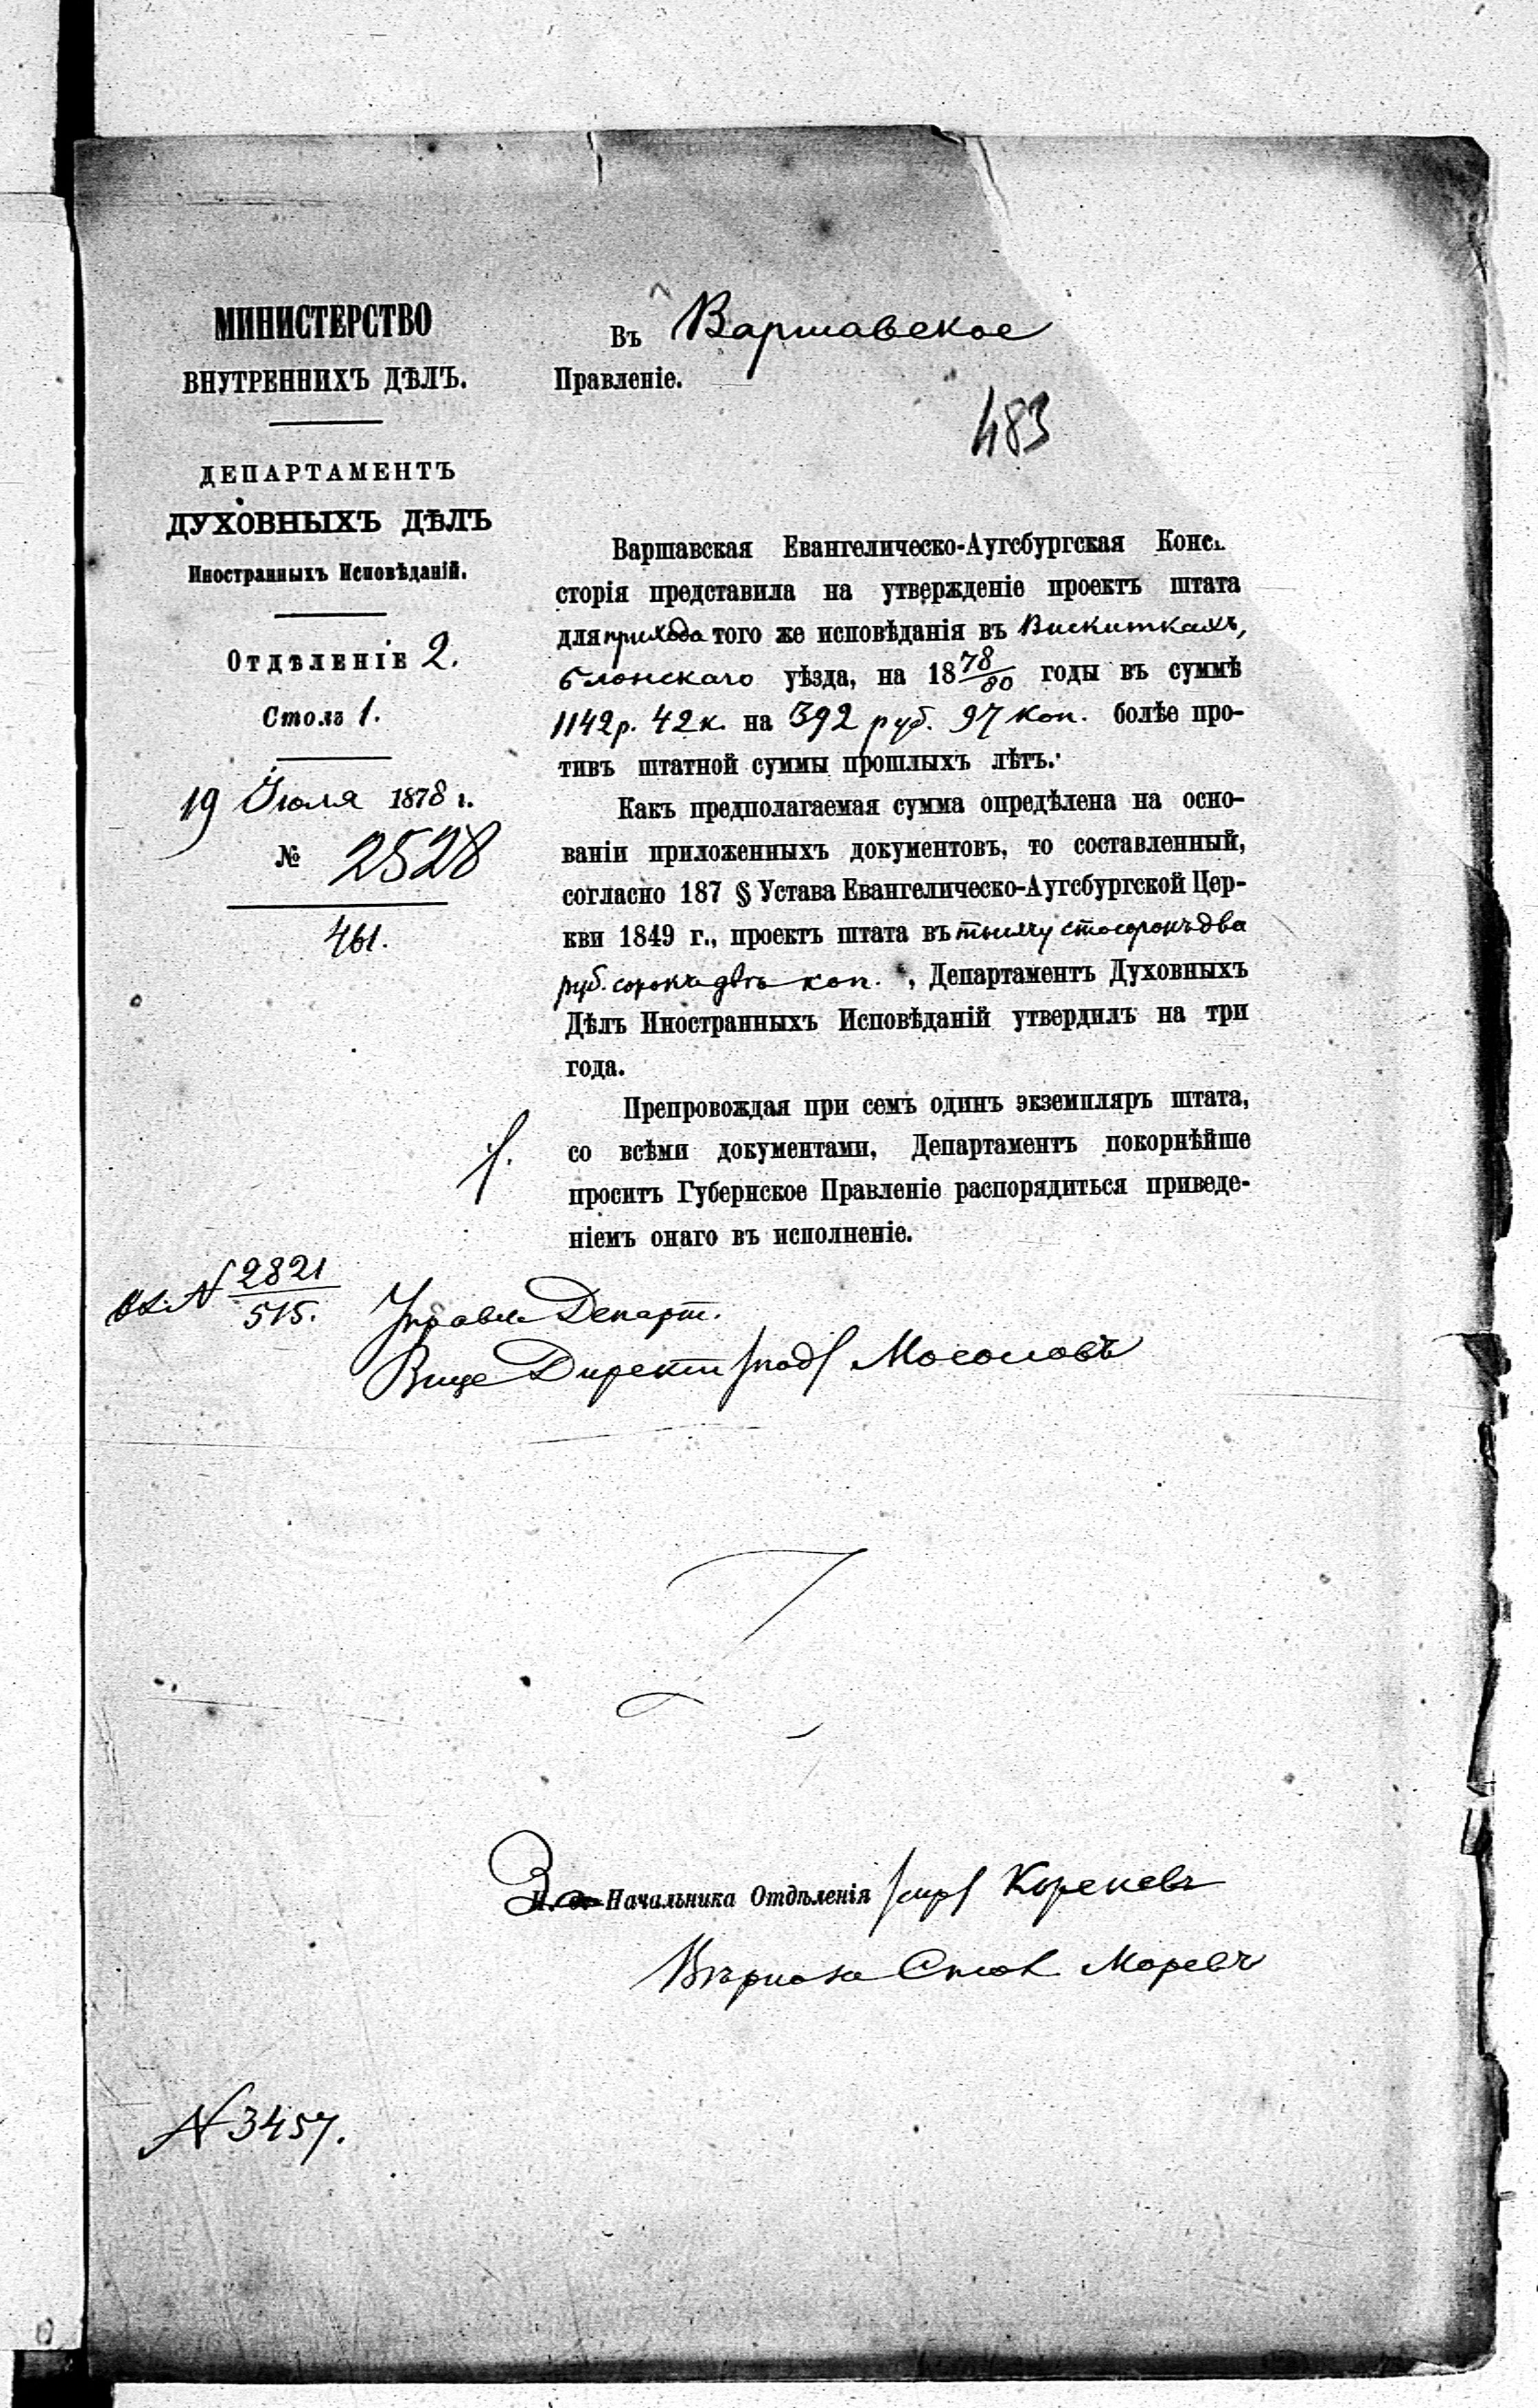 МИНИСТЕРСТВО
ВНУТРЕННИХЪ ДѢЛЪ.
ДЕПАРТАМЕНТЪ
ДУХОВНЫХЪ ДѢЛЪ
Иностранныхъ Исповѣданій.
Отдѣленіе 2.
Столъ 1.
19 Июля 1878 г.
№ 2528
461.
Въ Варшавское
Правленіе.
483
Варшавская Евангелическо-Аугсбургская Конси
сторія представила на утвержденіе проектъ штата
для прихода того же исповѣданія въ Вискиткахъ,
Блонскаго уѣзда, на 18 78/80 годы въ суммѣ
1142 р. 42 к. на 392 руб. 97 коп. болѣе про-
тивъ штатной суммы прошлыхъ лѣтъ.
Какъ предполагаемая сумма опредѣлена на осно-
ваніи приложенныхъ документовъ, то составленный,
согласно 187 § Устава Евангелическо-Аугсбургской Цер-
кви 1849 г., проектъ штата въ тысячу сто сорокъ два
руб. сорокъ двѣ коп., Департаментъ Духовныхъ
Дѣлъ Иностранныхъ Исповѣданій утвердилъ на три
года.
Препровождая при семъ одинъ экземпляръ штата,
со всѣми документами, Департаментъ покорнѣйше
проситъ Губернское Правленіе распорядиться приведе-
ніемъ онаго въ исполненіе.
вх. N 2821/515.
Управл Департ.
Вице Директ /под/ Мосоловъ
За Начальника Отдѣленія /скр/ Кореневъ
Вѣрно за Стол Моревъ
N 3457.